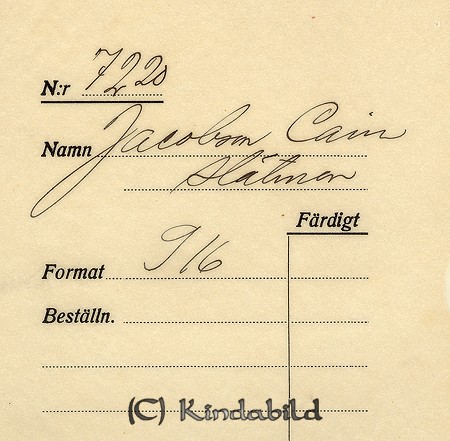 N:r 7220
Namn Jacobson Cain
Slätmon
Färdigt
Format 9/6
Beställn.
(C) Kindabild